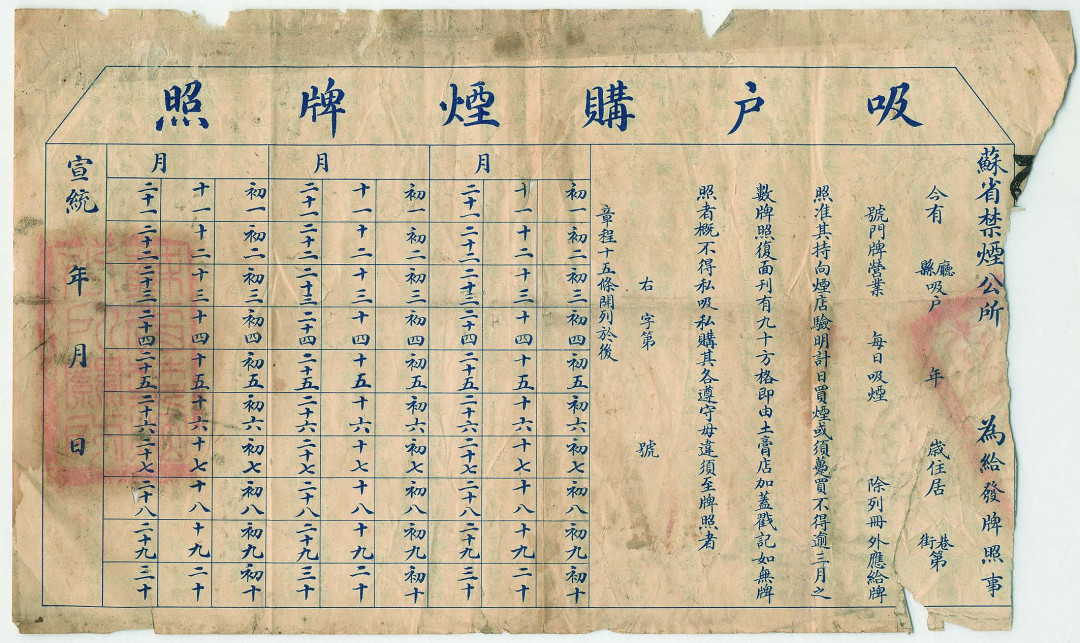 吸户購煙牌照
蘇省禁煙公所 為給發牌照事
今有 廳縣吸户 年 歲住居 街巷第
號門牌營業 每日吸煙 除列冊外應給牌
照准其持向煙店驗明計日買煙或須躉買不得逾三月之
數牌照復面刊有九十方格即由土膏店加蓋戳記如無牌
照者概不得私吸私購其各遵守毋違須至牌照者
右 字第 號
章程十五條開列於後
月
初一 初二 初三 初四 初五 初六 初七 初八 初九 初十
十一 十二 十三 十四 十五 十六 十七 十八 十九 二十
二十一 二十二 二十三 二十四 二十五 二十六 二十七 二十八 二十九 三十
月
初一 初二 初三 初四 初五 初六 初七 初八 初九 初十
十一 十二 十三 十四 十五 十六 十七 十八 十九 二十
二十一 二十二 二十三 二十四 二十五 二十六 二十七 二十八 二十九 三十
月
初一 初二 初三 初四 初五 初六 初七 初八 初九 初十
十一 十二 十三 十四 十五 十六 十七 十八 十九 二十
二十一 二十二 二十三 二十四 二十五 二十六 二十七 二十八 二十九 三十
宣統 年 月 日